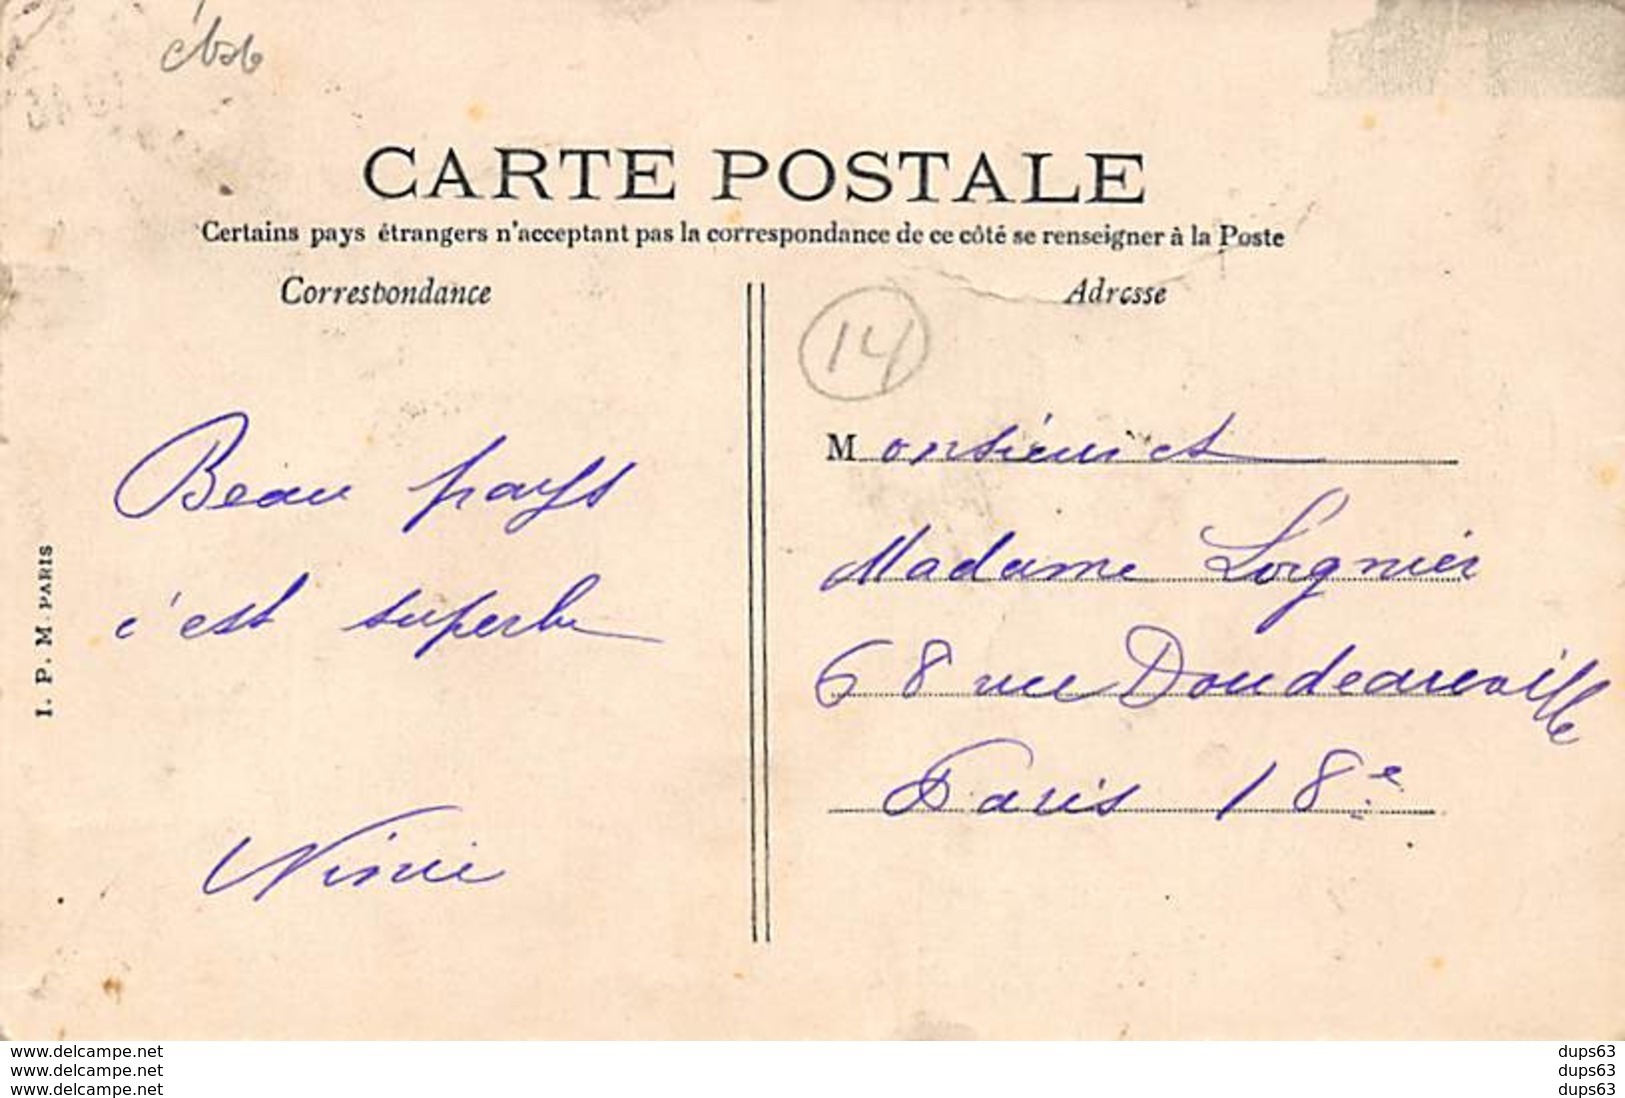 CARTE POSTALE
Certains pays étrangers n'acceptant pas la correspondance de ce côté se renseigner à la Poste
Correspondance
Adresse
14
Beau pays
c'est superbe
Ninie
Monsieur et
Madame Lorgnier
68 rue Doudeauville
Paris 18e
I. P. M. PARIS
www.delcampe.net
www.delcampe.net
www.delcampe.net
dups63
dups63
dups63